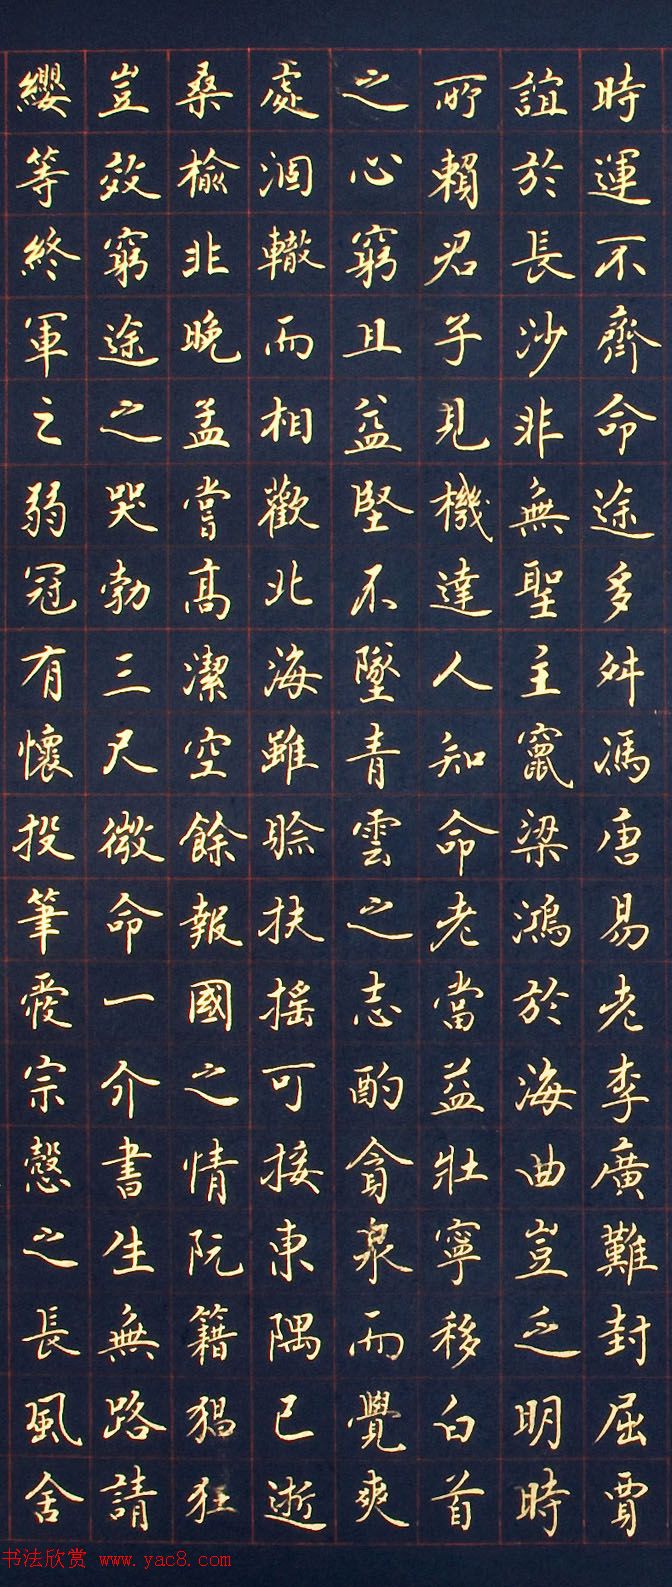 時運不齊命途多舛馮唐易老李廣難封屈賈
誼於長沙非無聖主竄梁鴻於海曲豈乏明時
所賴君子見機達人知命老當益壯寧移白首
之心窮且益堅不墜青雲之志酌貪泉而覺爽
處涸轍而相歡北海雖賒扶摇可接東隅已逝
桑榆非晚孟嘗高潔空餘報國之情阮籍猖狂
豈效窮途之哭勃三尺微命一介書生無路請
纓等終軍之弱冠有懷投筆愛宗慤之長風舍
书法欣赏 www.yac8.com